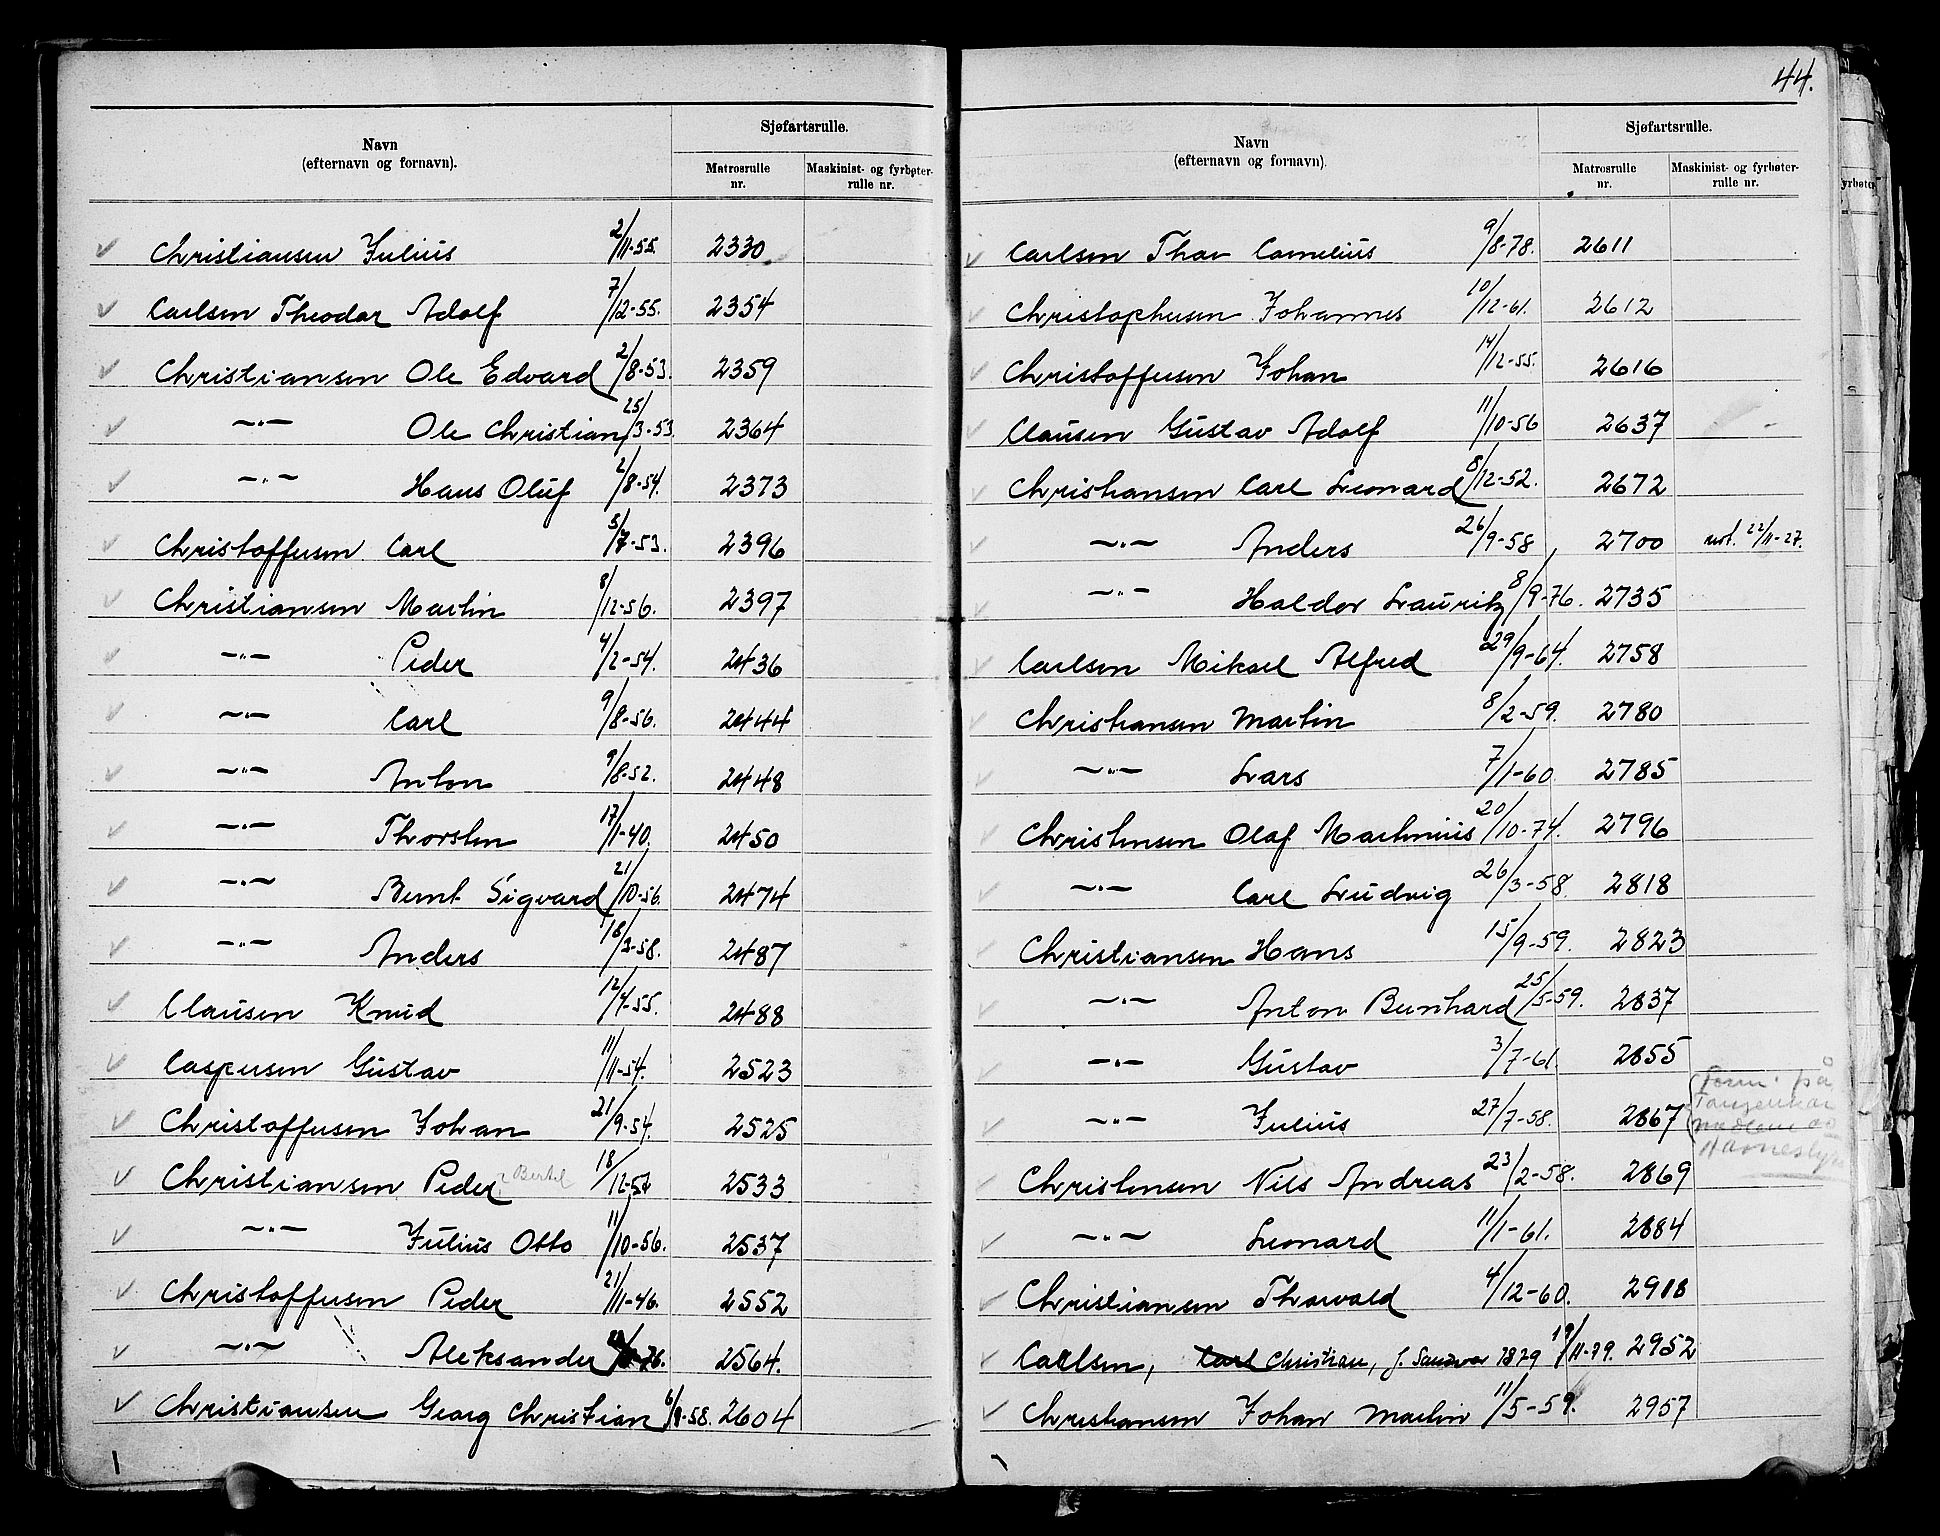 Navn
(efternavn og fornavn).
Sjøfartsrulle.
Matrosrulle nr.
Maskinist- og fyrbøter-rulle nr.
Christiansen Julius 2/11-55. 2330
Carlsen Theodor Adolf 7/12-55. 2354
Christiansen Ole Edvard 2/8-53. 2359
—〃— Ole Christian 25/3-53. 2364
—〃— Hans Oluf 2/8-54. 2373
Christoffersen Carl 5/7-53. 2396
Christiansen Martin 8/12-56. 2397
—〃— Peder 4/2-54. 2436
—〃— Carl 9/8-56. 2444
—〃— Anton 9/8-52. 2448
—〃— Thorsten 17/1-40. 2450
—〃— Bernt Sigvard 21/10-56. 2474
—〃— Anders 18/3-58. 2487
Clausen Knud 12/4-55. 2488
Caspersen Gustav 11/11-54. 2523
Christoffersen Johan 21/9-54. 2525
Christiansen Peder Bertel 18/12-54 2533
—〃— Julius Otto 11/10-56. 2537
Christoffersen Peder 21/11-46. 2552
—〃— Aleksander 76. 2564.
Christiansen Georg Christian 6/8-58. 2604
44.
Navn
(efternavn og fornavn).
Sjøfartsrulle.
Matrosrulle nr.
Maskinist- og fyrbøter-rulle nr.
Carlsen Thor Cornelius 9/8-78. 2611
Christophersen Johannes 10/12-61. 2612
Christoffersen Johan 14/12-55. 2616
Clausen Gustav Adolf 11/10-56 2637
Christiansen Carl Leonard 8/12-52. 2672
—〃— Anders 26/9-58 2700 ust. 22/11-27.
—〃— Haldor Lauritz 8/9-76. 2735
Carlsen Mikael Alfred 29/9-64. 2758
Christiansen Martin 8/2-59. 2780
—〃— Lars 7/1-60. 2785
Christensen Olaf Martinius 20/10-74. 2796
—〃— Carl Ludvig 26/3-58. 2818
Christiansen Hans 15/9-59. 2823
—〃— Anton Bernhard 25/5-59. 2837
—〃— Gustav 3/7-61. 2855
—〃— Julius 27/7-58. 2867
Form. på
Christensen Nils Andreas 23/2-58. 2869
—〃— Leonard 11/1-61. 2884
Christiansen Thorvald 4/12-60. 2918
Carlsen, Carl Christian, f. Sandvær 1879 19/11-79. 2952
Christiansen Johan Martin 11/5-59. 2957